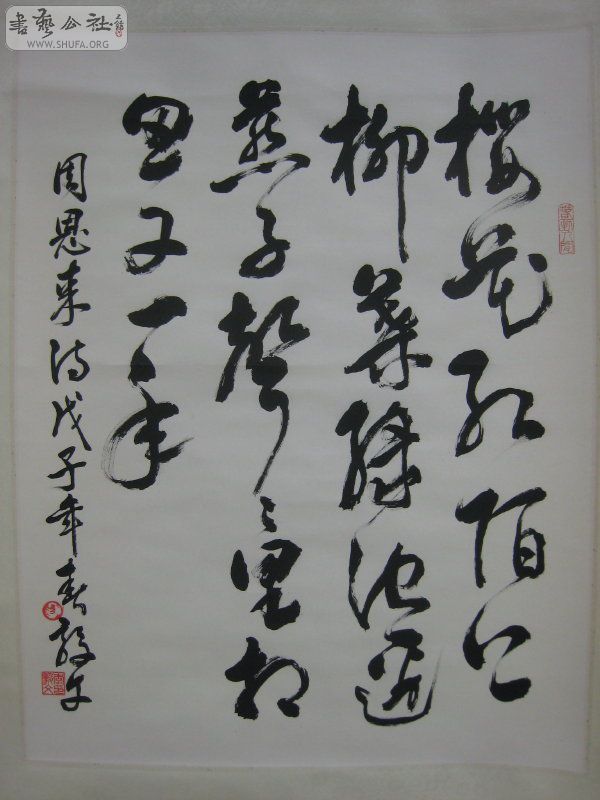 書藝公社
WWW.SHUFA.ORG
樱花红陌上
柳葉绿池邊
燕子聲々里相
思又一年
周恩来诗戊子年春